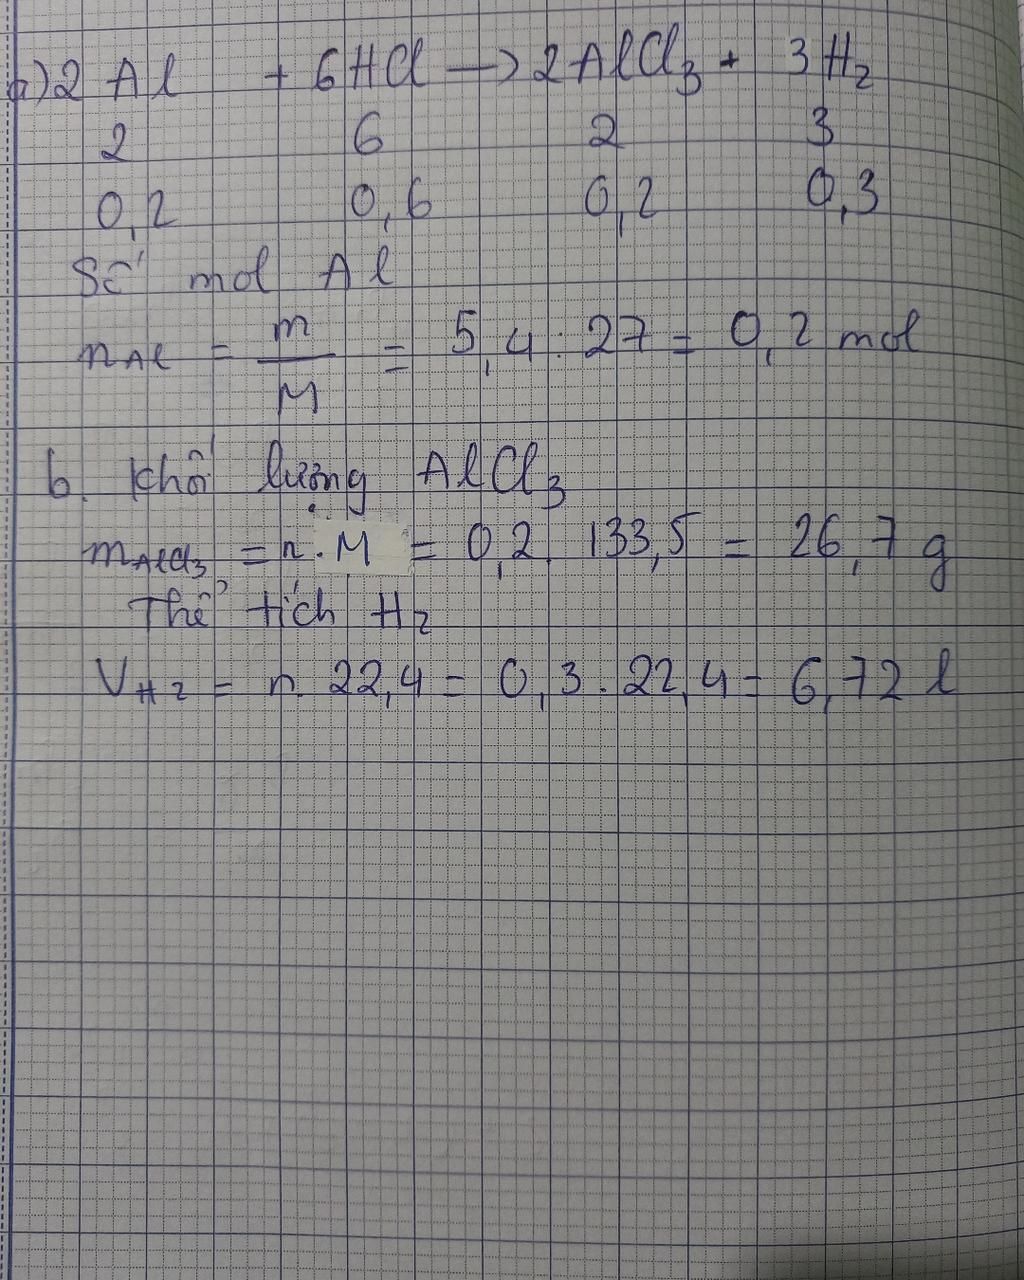 a) 2 Al + 6HCl → 2AlCl3 + 3H2
2 6 2 3
0,2 0,6 0,2 0,3
Số mol Al
nAl = m/M = 5,4 : 27 = 0,2 mol
b. Khối lượng AlCl3
mAlCl3 = n . M = 0,2 . 133,5 = 26,7 g
Thể tích H2
VH2 = n . 22,4 = 0,3 . 22,4 = 6,72 l